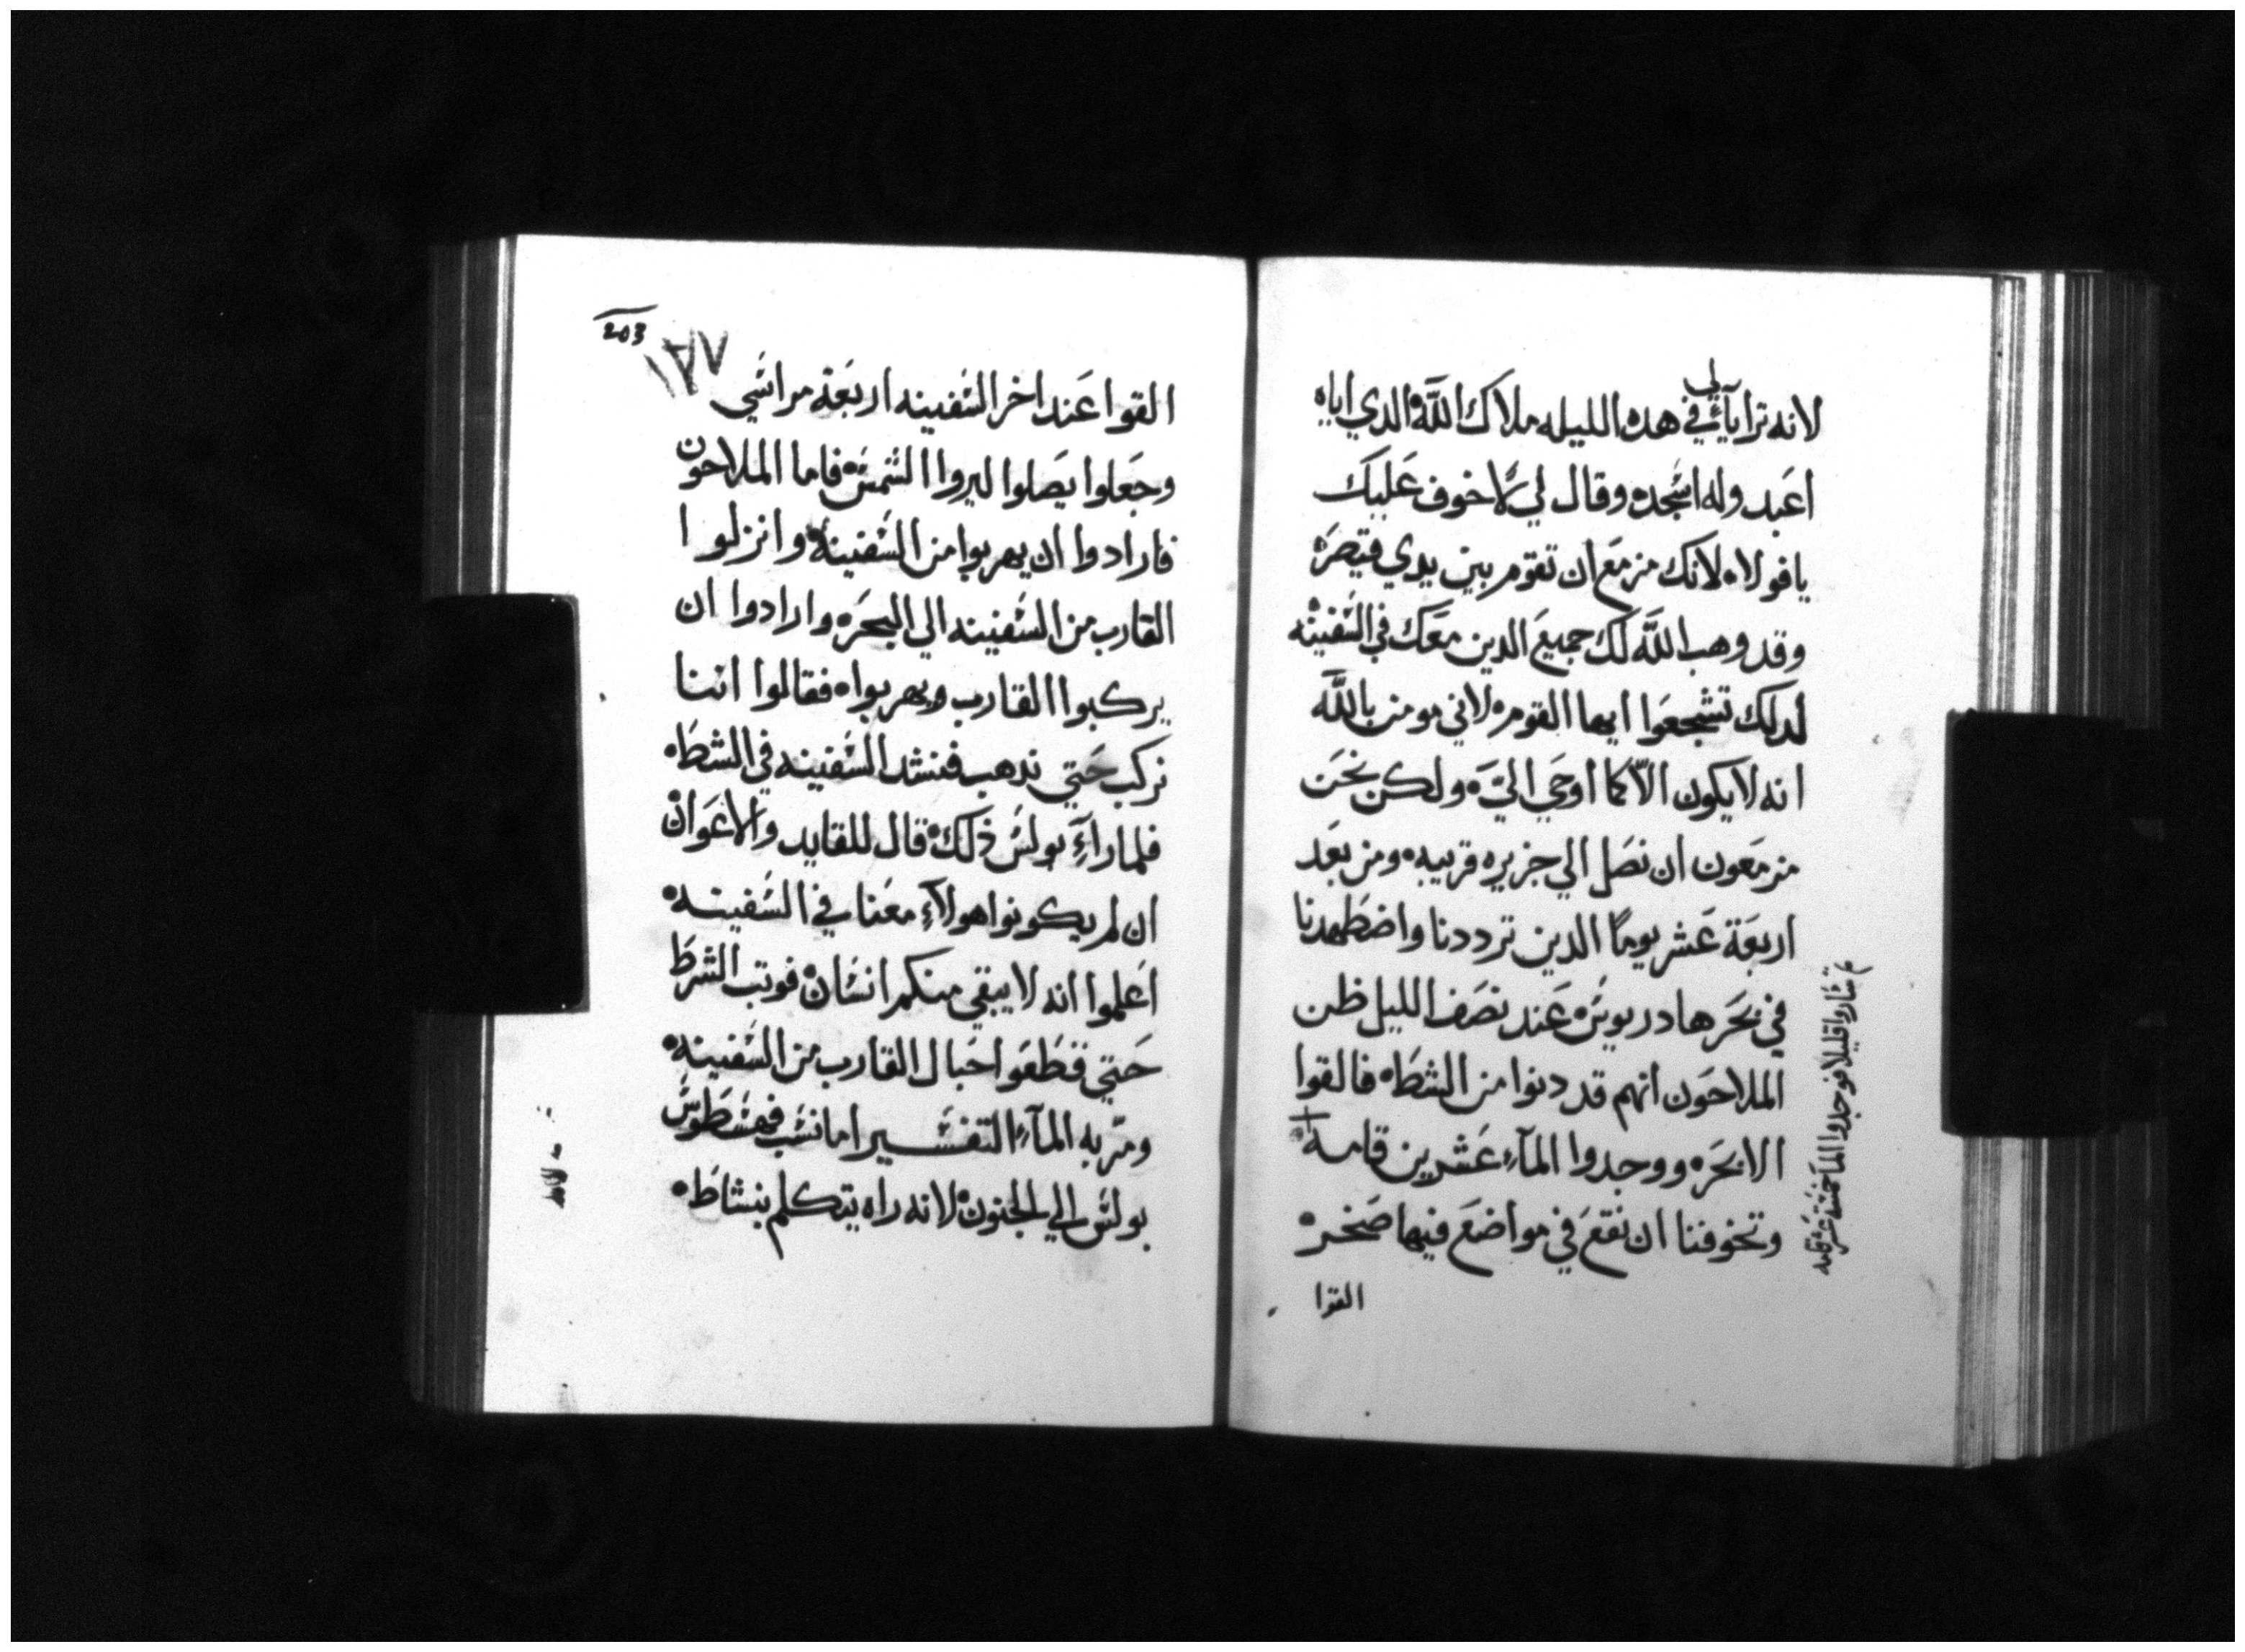 لانه ترايآئي لي في هده الليله ملاك اللَّه الدي اياه
اعَبد وله اسَجده وقال لي لا خوف عَليك
يا فولاه لانك مزمَع ان تقوم بين يدي قيصَره
وقد وهب اللَّه لك جميعَ الدين معَك في السَفينه
لدلك تشجعَوا ايها القومه لاني مومن باللَّه
انه لا يكون الاّ كما اوحَي اليَّه ولكن نحَن
مزمَعون ان نصَل الي جزيره قريبه ومن بعَد
اربعَة عَشر يومًا الدين ترددنا واضطَهدنا
في بحَر هادريوسَ عَند نصَف الليل ظن
الملاحَون انهم قد دنوا من الشطَاه فالقوا
الابحَره ووجدوا المآء عَشرين قامه
وتخوفنا ان نقعَ في مواضعَ فيها صَخره
القوا
ثم سَاروا قليلا فوجدوا المآ خمسَة عَشر قامه
203
١٣٧
القوا عَند اخر السَفينه اربعَة مراسَي
وجعَلوا يصَلوا ليروا الشمسَ فاما الملاحَون
فارادوا ان يهربوا من السَفينه وانزلوا
القارب من السَفينه الي البحَره وارادوا ان
يركبوا القارب ويهربواه فقالوا اننا
نركب حَتي ندهب فنشد السَفينه في الشطَاه
فلما رآء بولسَ ذلك قال للقايد والاعَوان
ان لم يكونوا هولآء معَنا في السَفينه
اعَلموا انه لا يبقي منكم انسَان فوتب الشرطَ
حَتي قطَعَوا حَبال القارب من السَفينه
ومرّ به المآء التفسَير اما نسَب فهسَطَوسَ
بولسَ الي الجنون لانه راه يتكلم بنشاطَ